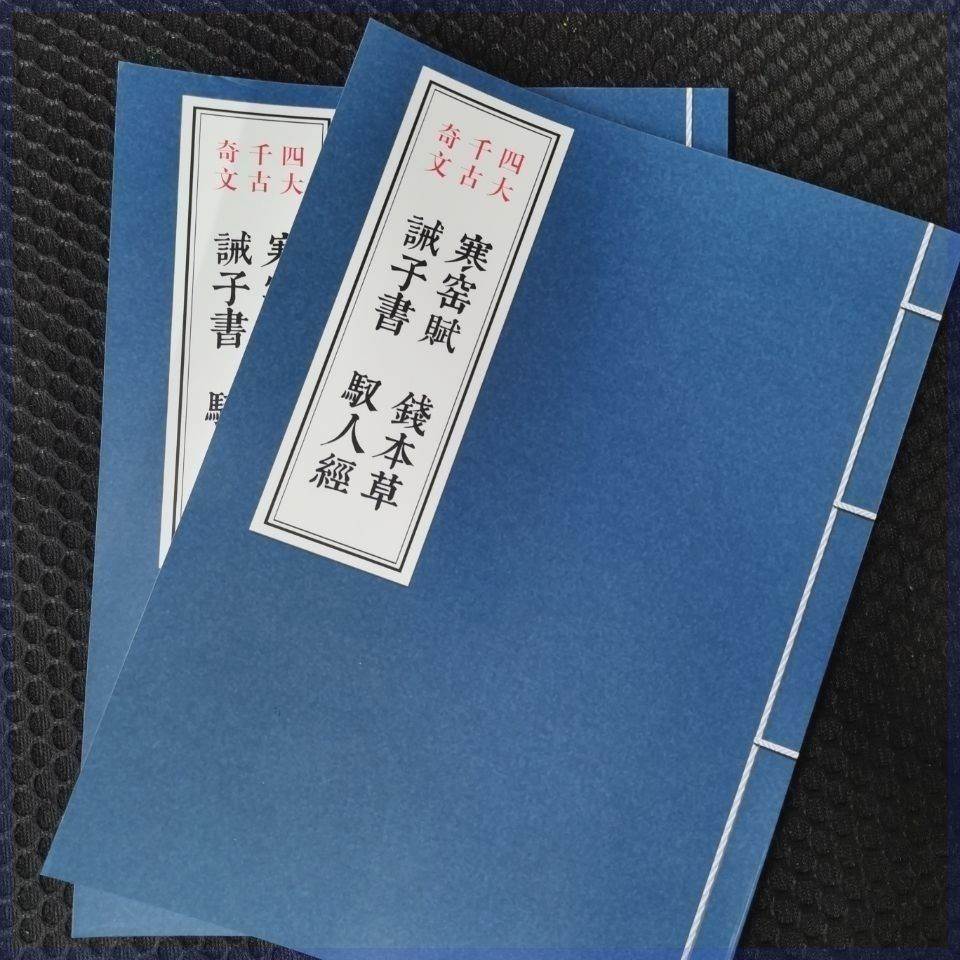 四大
千古
奇文
寒窑賦 錢本草
誡子書 馭人經
四大
千古
奇文
誡子書